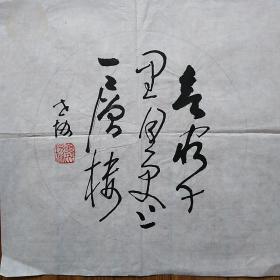 欲穷千
里目更上
一层楼